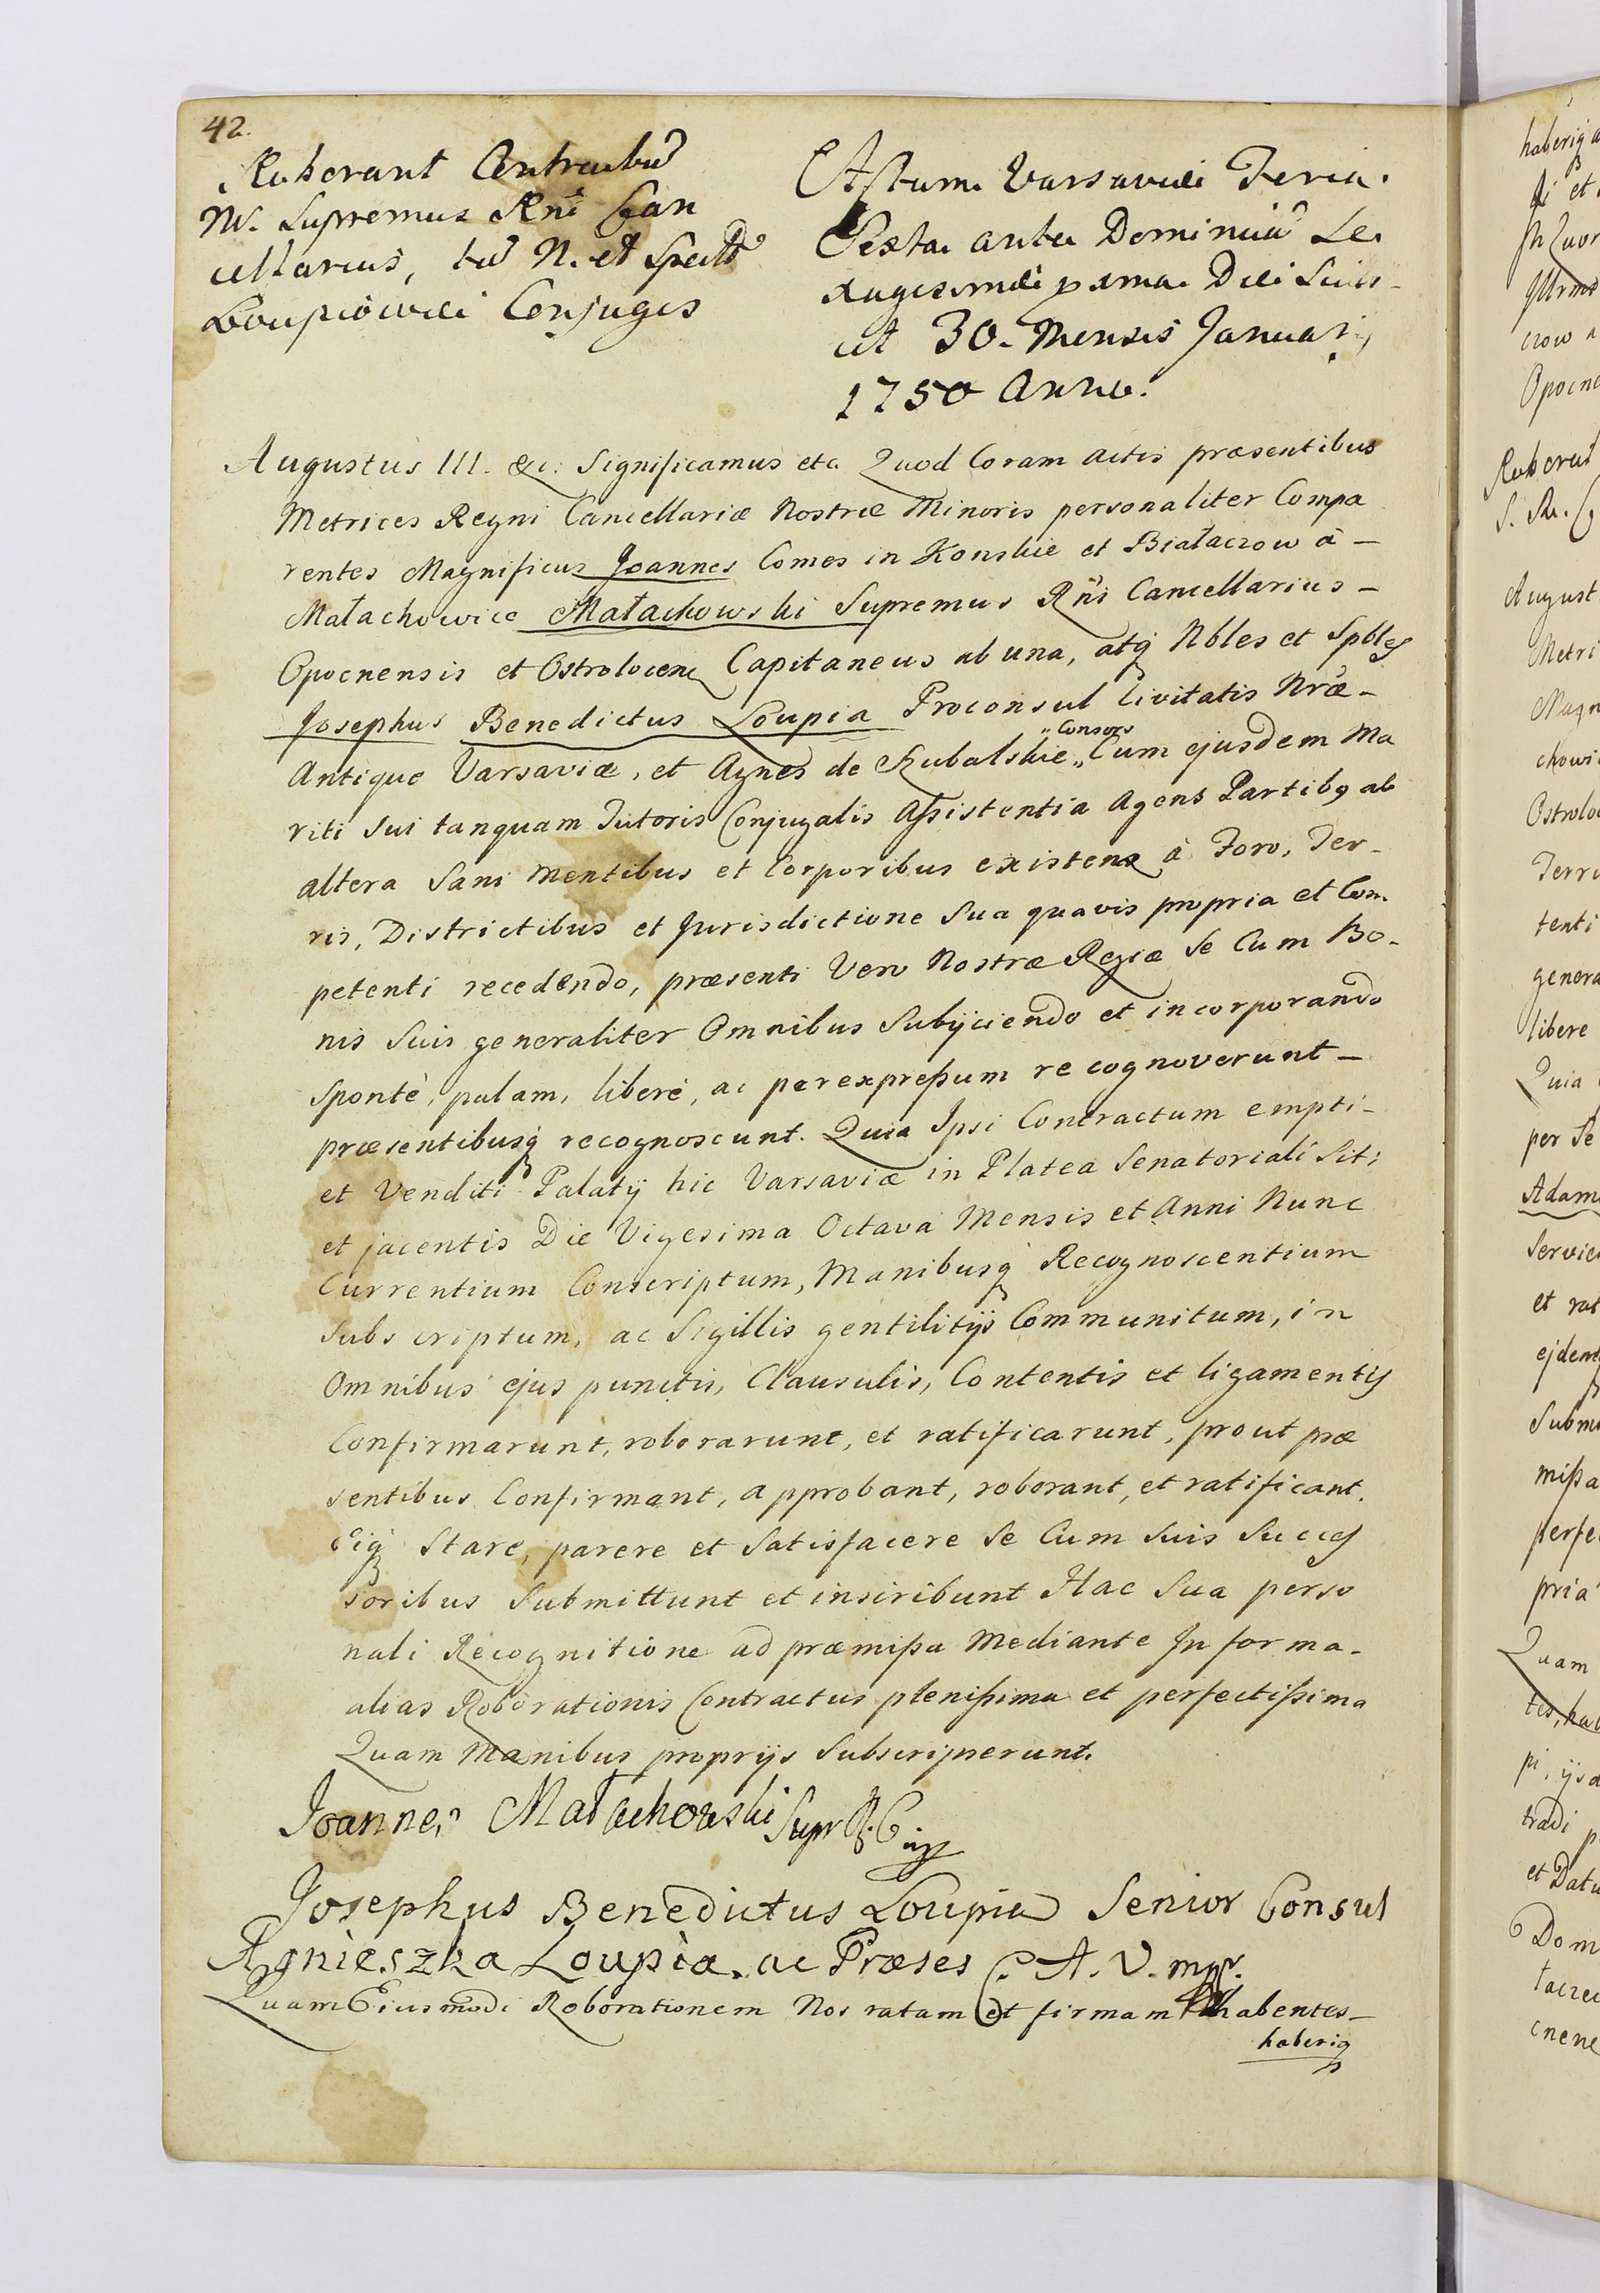 42.
Roborant Contractu
M. Supremus Rni Can
cellarius, tu N. et Spectt
Loupiowie Conjuges
Actum Varsaviæ Feria
Sexta ante Dominicã Se
xagesimæ proxima Die Scili-
cet 30. Mensis Januarij
1750 Anno.
Augustus III. &c: Significamus etc. Quod Coram actis præsentibus
Metrices Regni Cancellariæ Nostræ Minoris personaliter Compa
rentes Magnificus Joannes Comes in Konskie et Białaczow à -
Małachowice Małachowski Supremus Rni Cancellarius -
Opocnensis et Ostrolocen Capitaneus ab una, atq Nbles et Spbles
Josephus Benedictus Loupia Proconsul Civitatis Nræ -
"Consors
Antiquæ Varsaviæ, et Agnes de Rubalskie " Cum ejusdem Ma
riti Sui tanquam Tutoris Conjugalis Assistentia Agens Partibg ab
altera Sani Mentibus et Corporibus existens à Foro, Ter-
ris, Districtibus et Jurisdictione Sua quavis propria et Com
petenti recedendo, præsenti Vero Nostræ Regiæ Se Cum Bo-
nis Suis generaliter Omnibus Subijciendo et incorporando
Spontè, palam, liberè, ac per expressum recognoverunt -
præsentibusq recognoscunt. Quia Ipsi Contractum empti -
et Venditi Palatij hic Varsaviæ in Platea Senatoriali Siti
et jacentis Die Vigesima Octava Mensis et Anni Nunc
Currentium Conscriptum, Manibusq Recognoscentium
Subscriptum, ac Sigillis gentilitijs Communitum, in
Omnibus ejus punctis, Clausulis, Contentis et ligamentis
Confirmarunt, roborarunt, et ratificarunt, prout præ
sentibus Confirmant, approbant, roborant, et ratificant.
Eiq Stare, parere et Satisfacere Se Cum Suis Succes
soribus Submittunt et inscribunt Hac Sua perso
nali Recognitione ad præmissa Mediante In forma -
alias Roborationis Contractus plenissima et perfectissima
Quam Manibus proprijs Subscripserunt.
Joannes Małachowski Supr R. C
Josephus Benedictus Loupia Senior Consul
Agnieszka Loupia. ac Præses C. A. V. mpr.
Quam Eiusmodi Roborationem Nos ratam et firmam habentes -
haberiq